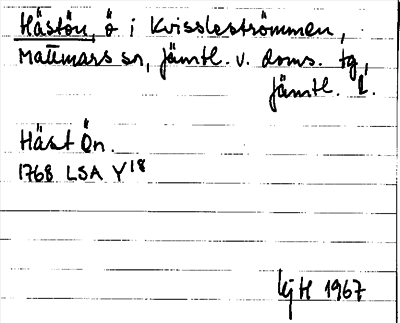 Hästön, ö i Kvisslesströmmen,
Mattmars sn, Jämtl. v. doms. tg,
Jämtl. l.
Häst Ön.
1768 LSA Y18
KjH 1967